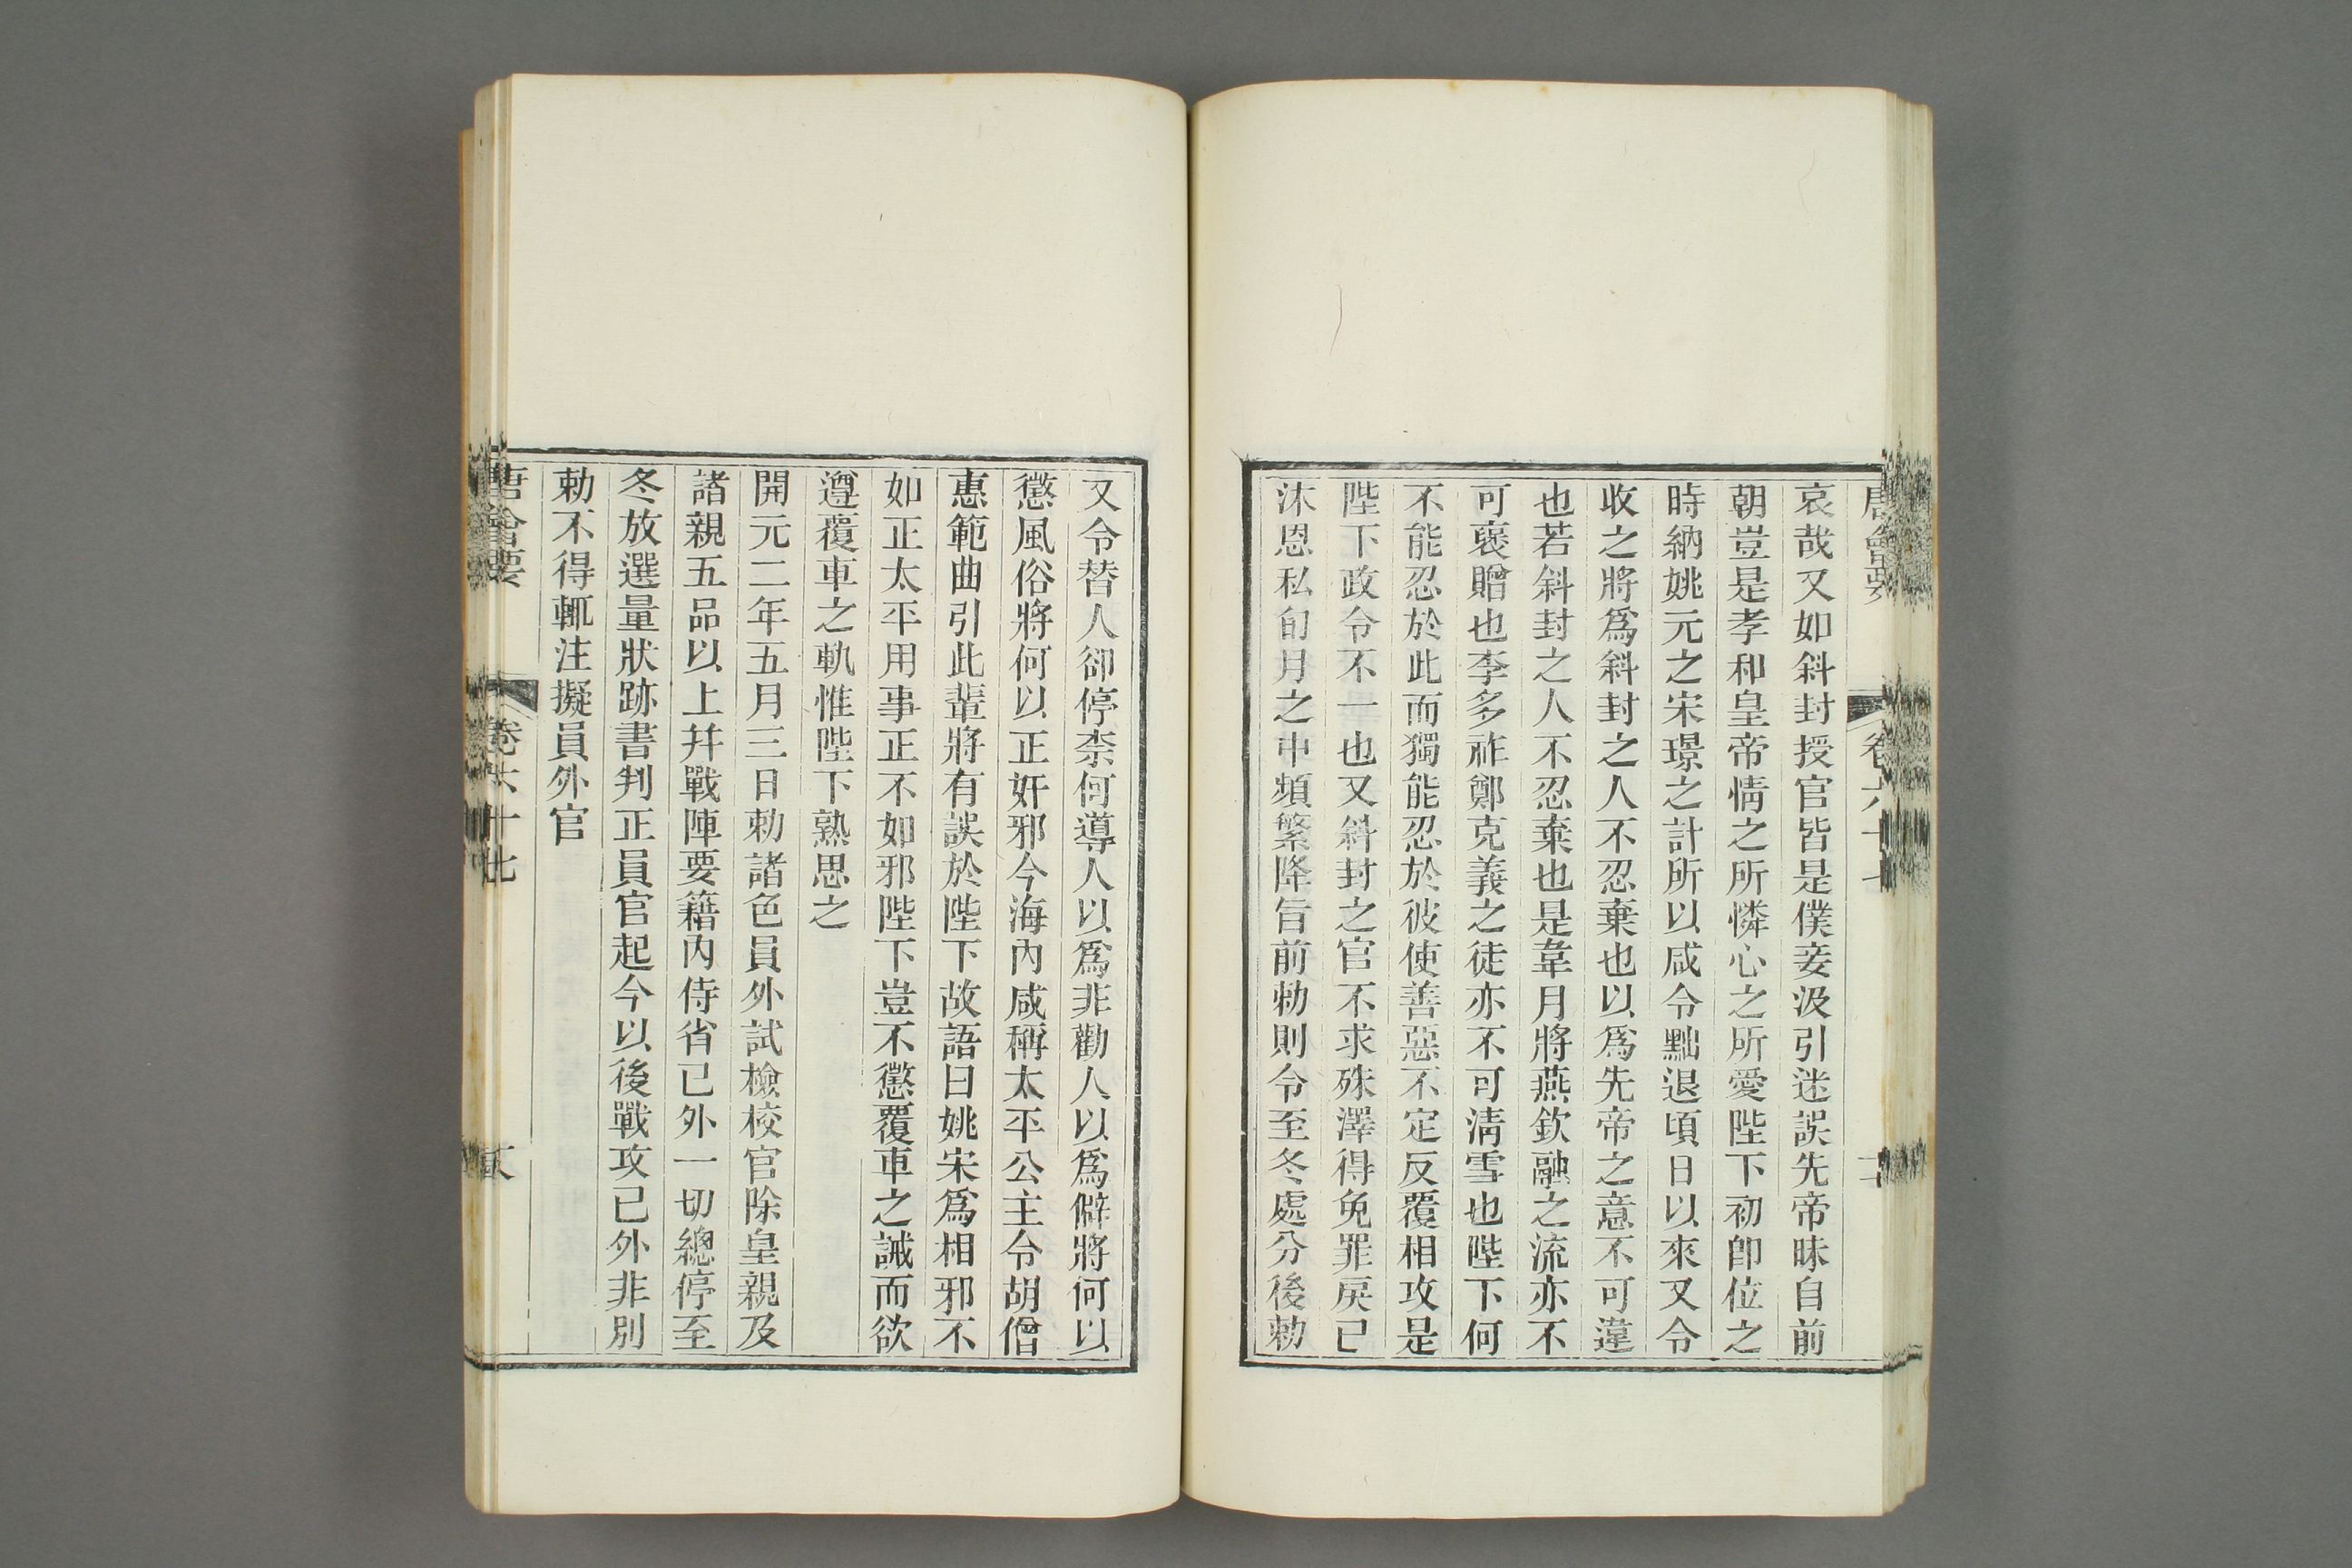 唐會要 卷六十七
哀哉又如斜封授官皆是僕妾汲引迷誤先帝昧自前
朝豈是孝和皇帝情之所憐心之所愛陛下初卽位之
時納姚元之宋璟之計所以咸令黜退頃日以來又令
收之將爲斜封之人不忍棄也以爲先帝之意不可違
也若斜封之人不忍棄也是韋月將燕欽融之流亦不
可褒贈也李多祚鄭克義之徒亦不可淸雪也陛下何
不能忍於此而獨能忍於彼使善惡不定反覆相攻是
陛下政令不一也又斜封之官不求殊澤得免罪戾已
沐恩私旬月之中頻繁降旨前勅則令至冬處分後勅
又令替人卻停柰何導人以爲非勸人以爲僻將何以
懲風俗將何以正奸邪今海內咸稱太平公主令胡僧
惠範曲引此輩將有誤於陛下故語曰姚宋爲相邪不
如正太平用事正不如邪陛下豈不懲覆車之誡而欲
遵覆車之軌惟陛下熟思之
開元二年五月三日勅諸色員外試檢校官除皇親及
諸親五品以上幷戰陣要籍內侍省已外一切總停至
冬放選量狀跡書判正員官起今以後戰攻已外非別
勅不得輒注擬員外官
唐會要 卷六十七